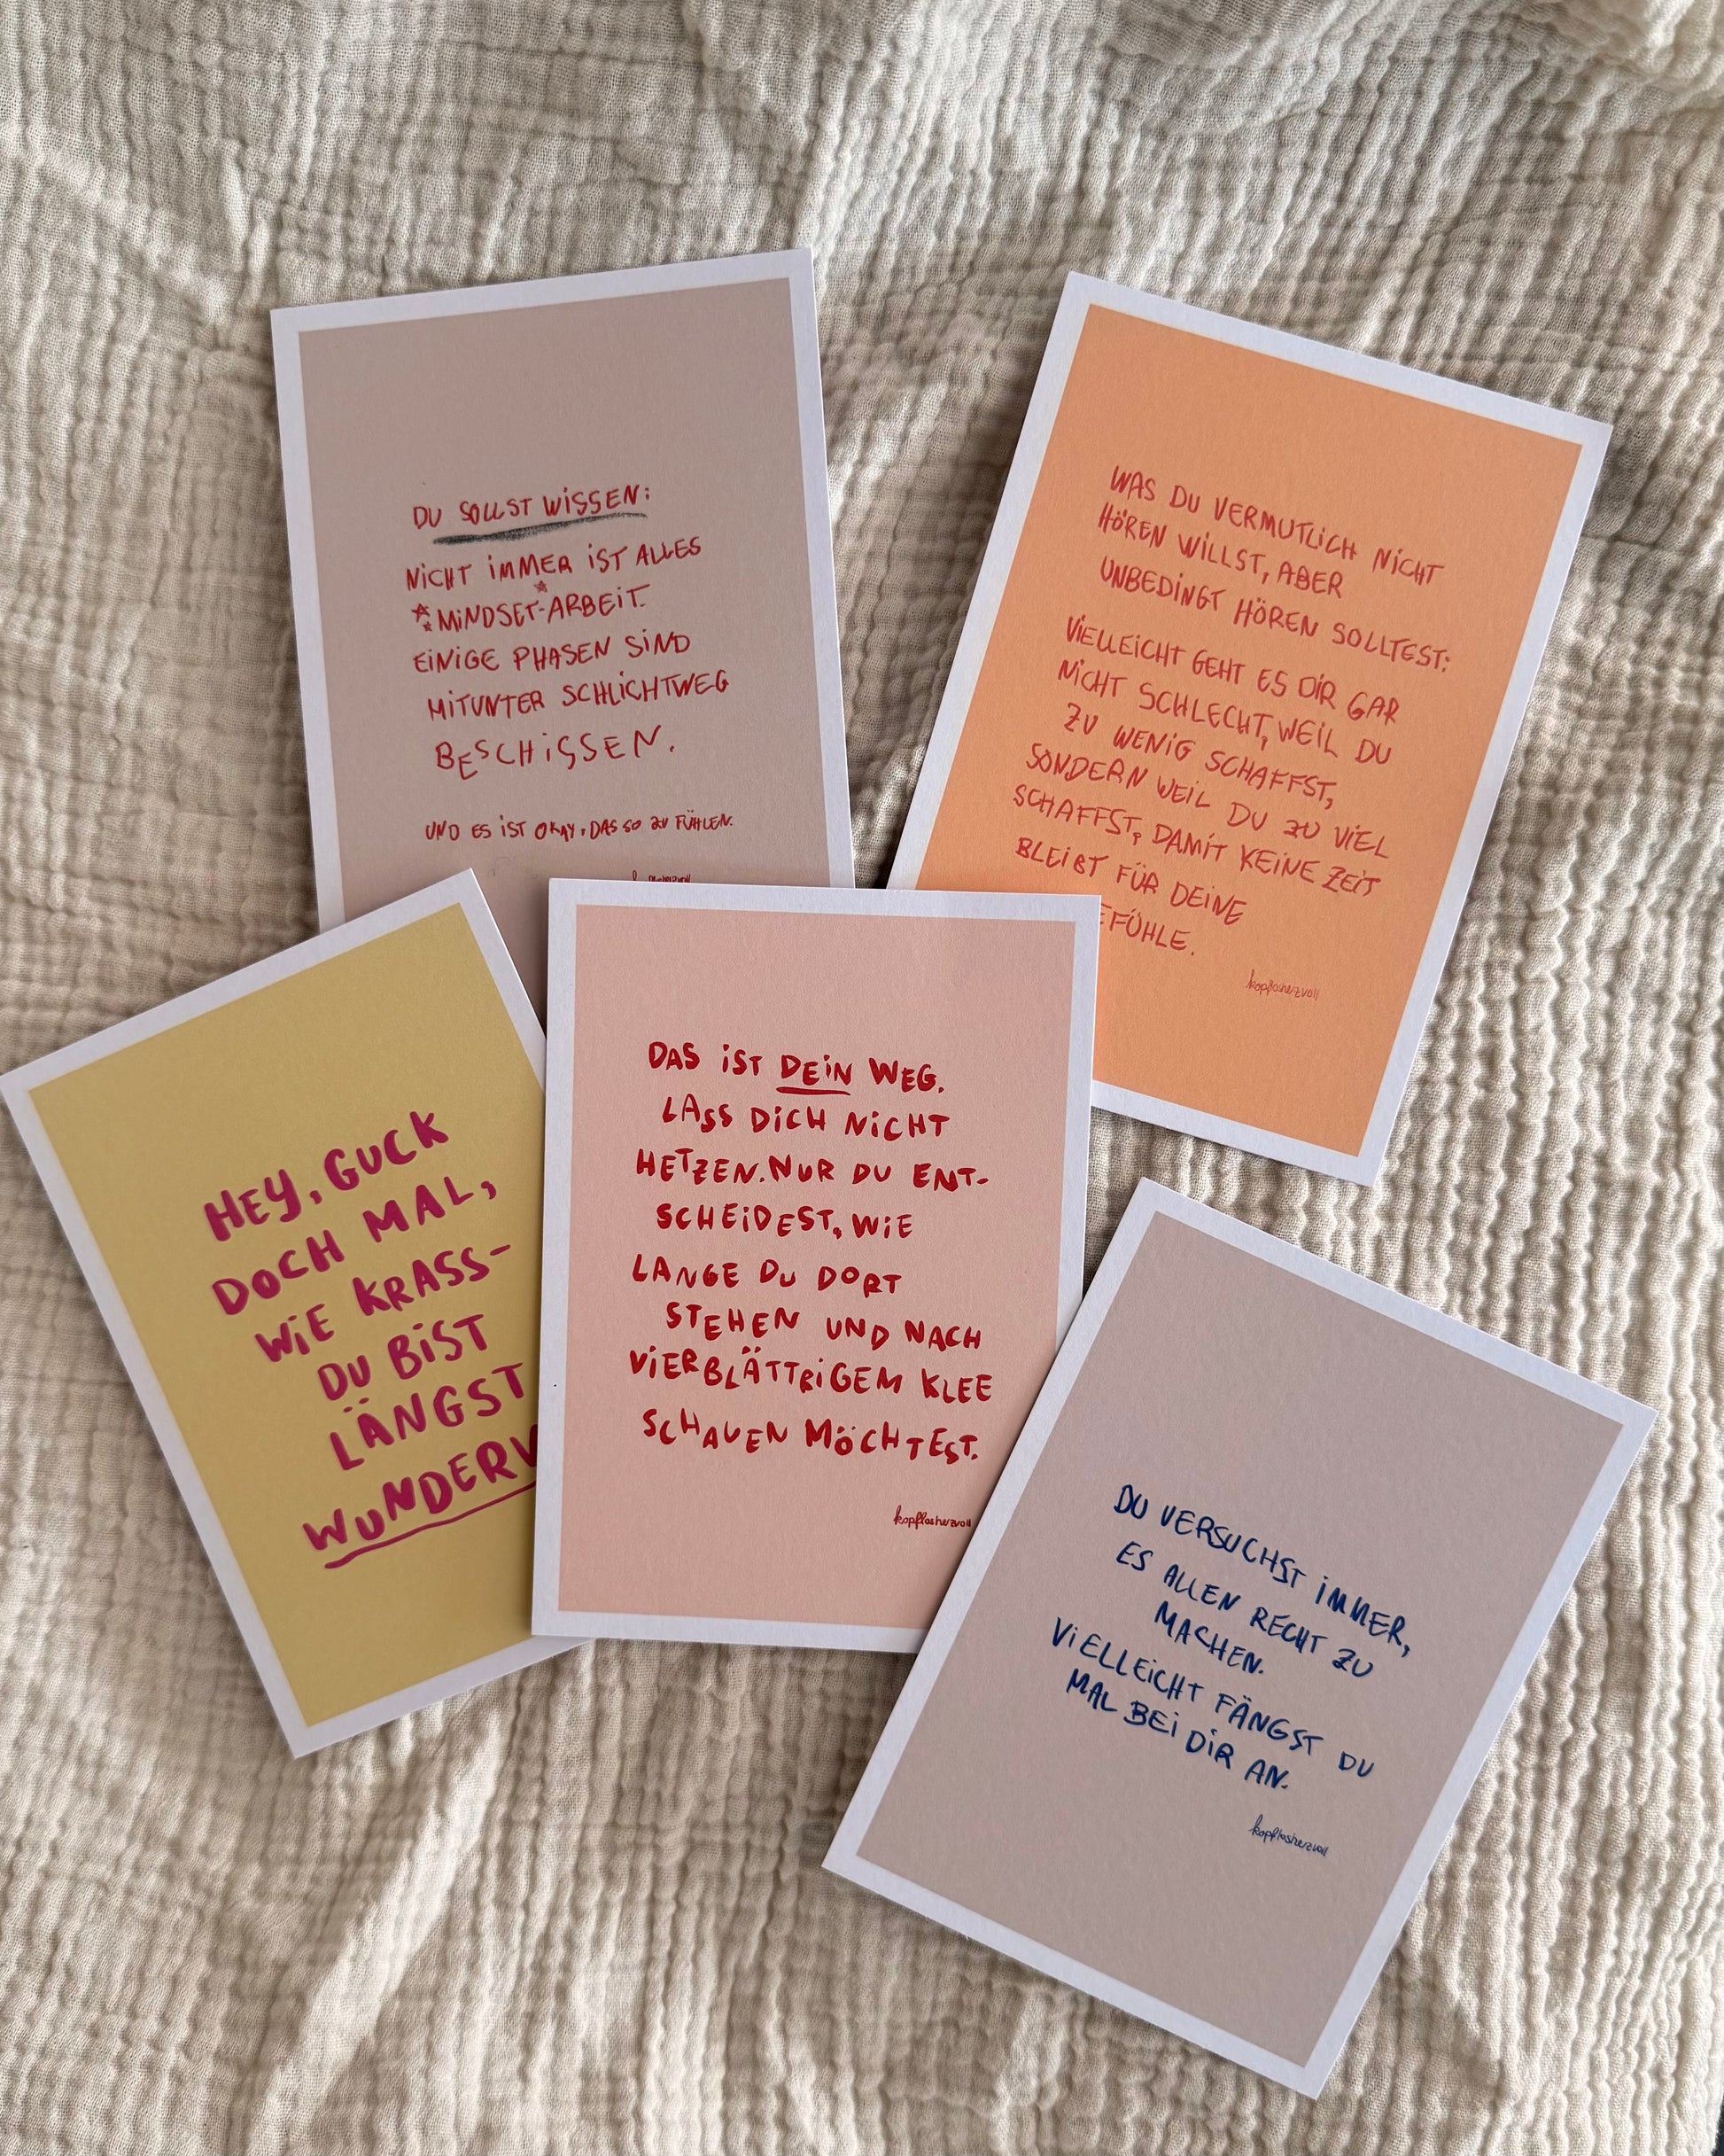 DU SOLLST WISSEN:
NICHT IMMER IST ALLES
*MINDSET-ARBEIT.*
EINIGE PHASEN SIND
MITUNTER SCHLICHTWEG
BESCHISSEN.
UND ES IST OKAY, DAS SO ZU FÜHLEN.
WAS DU VERMUTLICH NICHT
HÖREN WILLST, ABER
UNBEDINGT HÖREN SOLLTEST:
VIELLEICHT GEHT ES DIR GAR
NICHT SCHLECHT, WEIL DU
ZU WENIG SCHAFFST,
SONDERN WEIL DU ZU VIEL
SCHAFFST, DAMIT KEINE ZEIT
BLEIBT FÜR DEINE
EFÜHLE.
kopflosherzvoll
HEY, GUCK
DOCH MAL,
WIE KRASS-
DU BIST
LÄNGST
WUNDERV
DAS IST DEIN WEG.
LASS DICH NICHT
HETZEN. NUR DU ENT-
SCHEIDEST, WIE
LANGE DU DORT
STEHEN UND NACH
VIERBLÄTTRIGEM KLEE
SCHAUEN MÖCHTEST.
kopflosherzvoll
DU VERSUCHST IMMER,
ES ALLEN RECHT ZU
MACHEN.
VIELLEICHT FÄNGST DU
MAL BEI DIR AN.
kopflosherzvoll